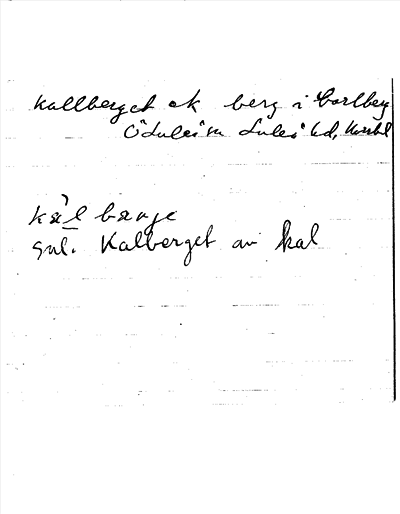 Kallberget ek berg i Carlberg
Ö Luleå sn Luleå hd, Nrrbl
kæ̀l bærje
snl. Kalberget av kal